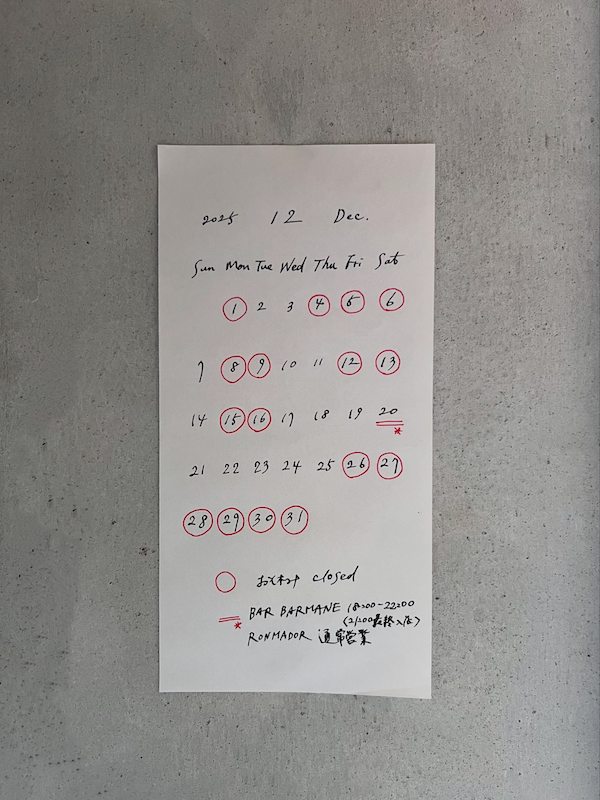 2025 12 Dec.
Sun Mon Tue Wed Thu Fri Sat
1 2 3 4 5 6
7 8 9 10 11 12 13
14 15 16 17 18 19 20
*
21 22 23 24 25 26 27
28 29 30 31
お休み closed
BAR BARMANE 18:00-22:00
* (21:00最終入店)
RONMADOR 通常営業